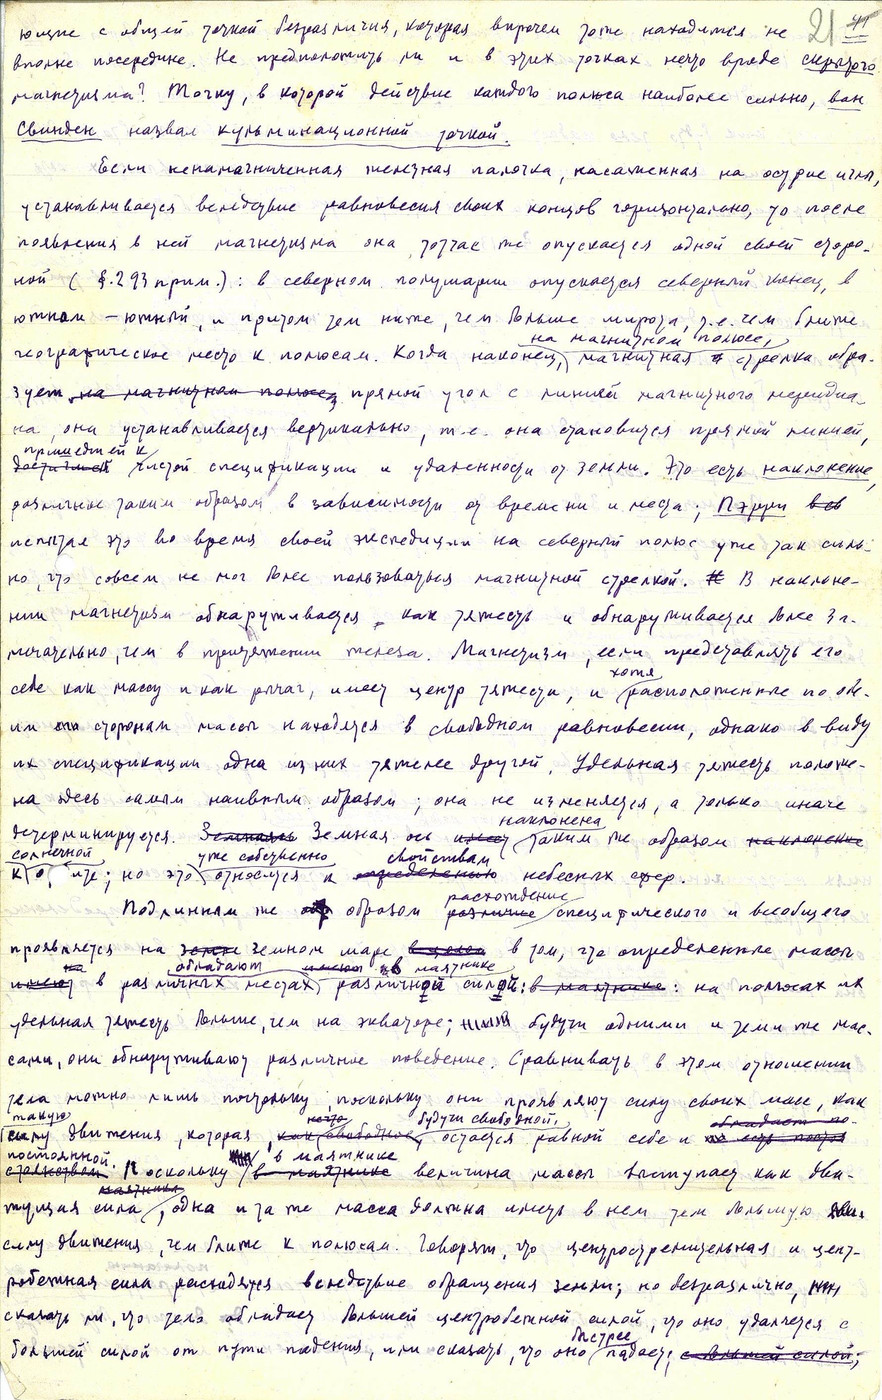 ющие с общей точкой безразличия, которая впрочем тоже находится не 21 41
вполне посередине. Не предположить ли и в этих точках нечто вроде скрытого
магнетизма? Точку, в которой действие каждого полюса наиболее сильно, ван
Свинден назвал кульминационной точкой.
Если ненамагниченная железная палочка, насаженная на острие иглы,
устанавливается вследствие равновесия своих концов горизонтально, то после
появления в ней магнетизма она тотчас же опускается одной своей сторо-
ной (§.293 прим.): в северном полушарии опускается северный конец, в
южном – южный, и притом тем ниже, чем больше широта, т.е. чем ближе
на магнитном полюсе,
географическое место к полюсам. Когда наконец, магнитная стрелка обра-
зует на магнитном полюсе прямой угол с линией магнитного меридиа-
на, она устанавливается вертикально, т.е. она становится прямой линией,
пришедшей к
достигшей чистой спецификации и удаленности от земли. Это есть наклонение,
различное таким образом в зависимости от времени и места; Пэрри
испытал это во время своей экспедиции на северный полюс уже так силь-
но, что совсем не мог более пользоваться магнитной стрелкой. В наклоне-
нии магнетизм обнаруживается как тяжесть и обнаруживается более за-
мечательно, чем в притяжении железа. Магнетизм, если представлять его
хотя
себе как массу и как рычаг, имеет центр тяжести, и расположенные по обе-
им сторонам массы находятся в свободном равновесии, однако в виду
их спецификации одна из них тяжелее другой. Удельная тяжесть положе-
на здесь самым наивным образом; она не изменяется, а только иначе
наклонена
детерминируется. Земная Земная ось имеет таким же образом наклонение
солнечной уже собственно свойствам
к о, ите; но это относится к определению небесных сфер.
расхождение
Подлинным же образом различие специфического и всеобщего
проявляется на земле земном шаре в целом в том, что определенные массы
на обладают имеют в маятнике
имеют в различных местах различной силой: в маятнике: на полюсах их
удельная тяжесть больше, чем на экваторе; будучи одними и теми же мас-
сами, они обнаруживают различное поведение. Сравнивать в этом отношении
тела можно лишь постольку, поскольку они проявляют силу своих масс, как
такую нечто будучи свободной, обладает по-
силу движения, которая, как свободное, остается равной себе и
постоянной. в маятнике
стоянством Поскольку в маятнике величина массы выступает как дви-
маятника
жущая сила, одна и та же масса должна иметь в нем тем большую
силу движения, чем ближе к полюсам. Говорят, что центростремительная и цент-
робежная сила расходятся вследствие обращения земли; но безразлично,
сказать ли, что тело обладает большей центробежной силой, что оно удаляется с
быстрее
большей силой от пути падения, или сказать, что оно падает; с большей силой;